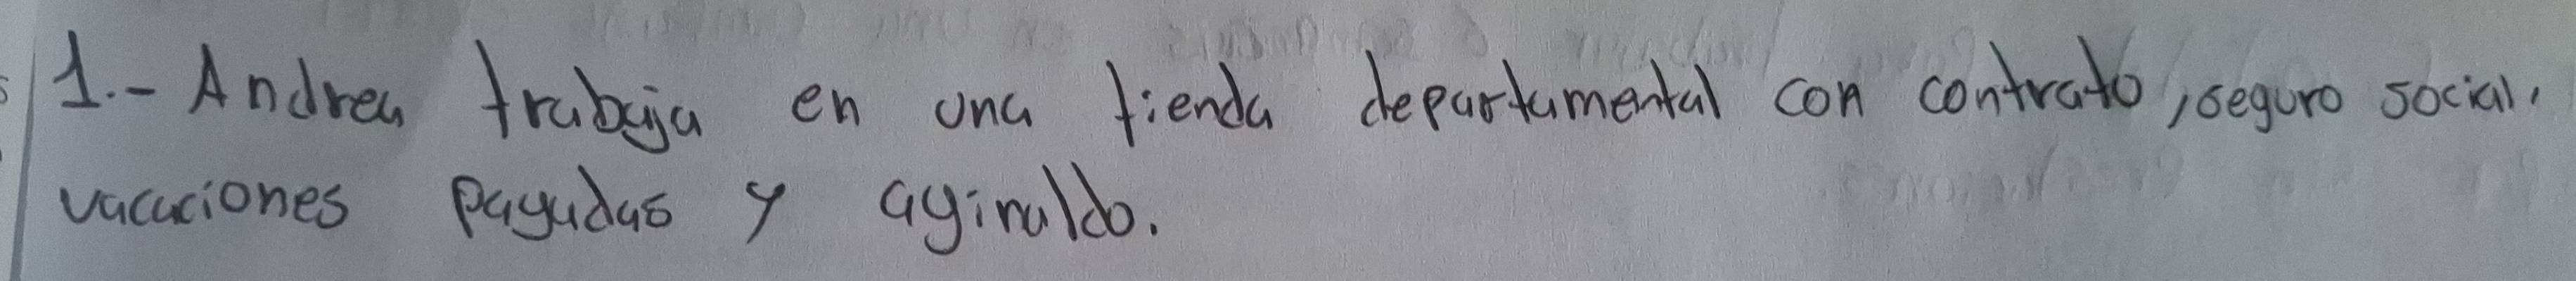 1.- Andrea trabaja en una tienda departamental con contrato, seguro social,
vacaciones pagadas y aginaldo.